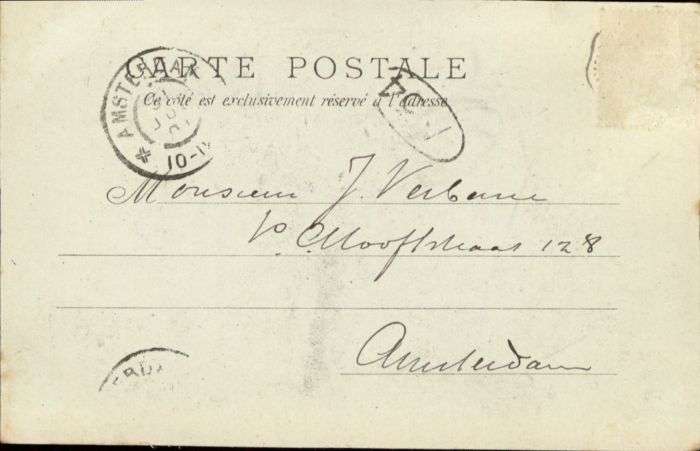 CARTE POSTALE
Ce côté est exclusivement réservé à l'adresse
AMSTERDAM
10-11
Monsieur J. Verbeme
P. C. Hooftstraat 128
Amsterdam